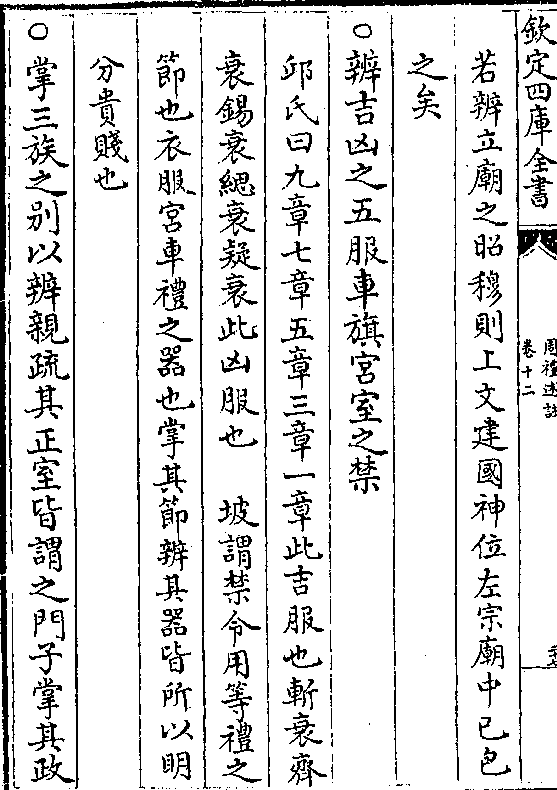 欽定四庫全書
周禮述註
卷十二
若辨立廟之昭穆則上文建國神位左宗廟中已包
之矣
○辨吉凶之五服車旗宮室之禁
邱氏曰九章七章五章三章一章此吉服也斬衰齊
衰錫衰緦衰疑衰此凶服也 坡謂禁令用等禮之
節也衣服宮車禮之器也掌其節辨其器皆所以明
分貴賤也
○掌三族之別以辨親疏其正室皆謂之門子掌其政